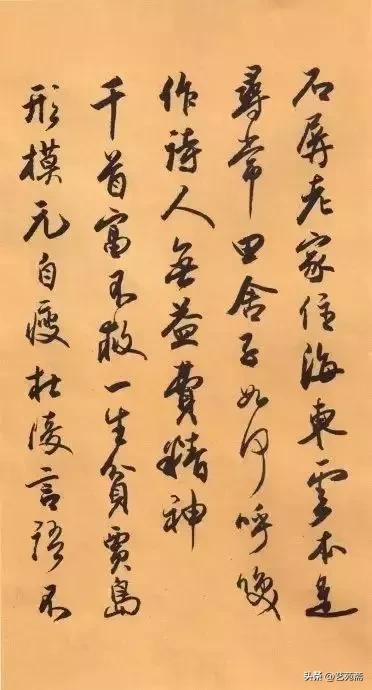 石屏老家住海東雲本是
尋常田舍子如何呼喚
作詩人無益費精神
千首富不救一生貧賈島
形模元自瘦杜陵言語不
头条@艺苑斋